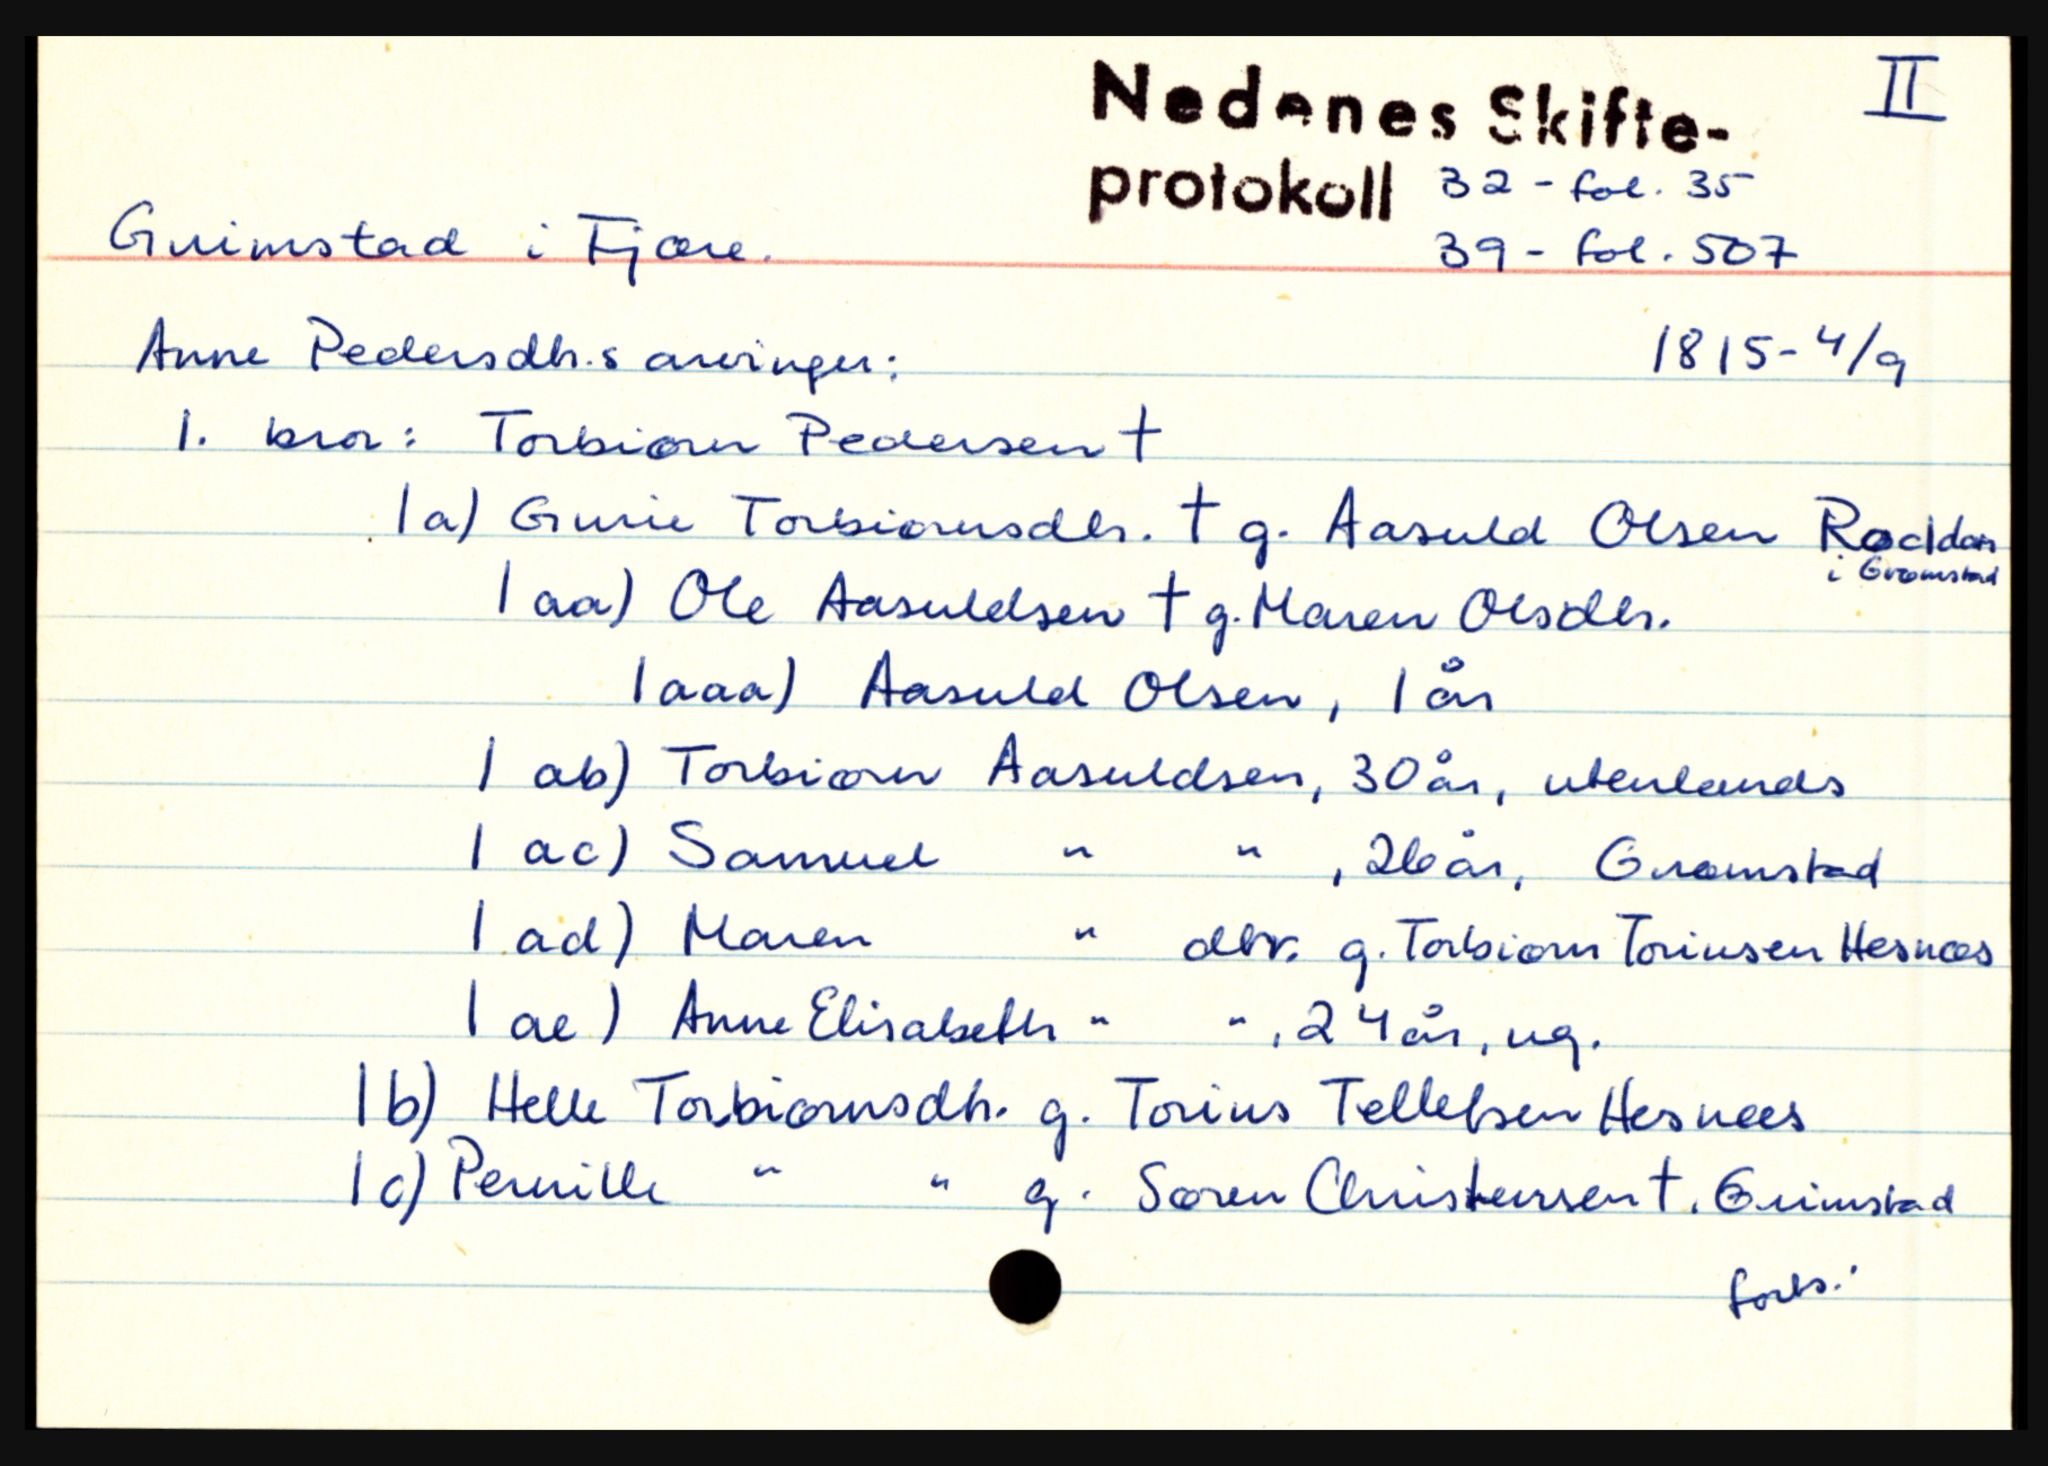 Nedenes Skifte-
protokoll 32 - fol. 35
39 - fol. 507
II
Grimstad i Fjære.
Anne Pedersdtr.s arvinger: 1815-4/9
1. bror: Torbiørn Pedersen †
1a) Gurie Torbiørnsdtr. † g. Aasuld Olsen Roddan
i Grømstad
1 aa) Ole Aasuldsen † g. Maren Olsdtr.
1 aaa) Aasuld Olsen, 1 år
1 ab) Torbiørn Aasuldsen, 30 år, utenlands
1 ac) Samuel " " , 26 år, Grømstad
1 ad) Maren " dtr. g. Torbiørn Toriusen Hesnæs
1 ae) Anne Elisabeth " " , 24 år, ug.
1b) Helle Torbiørnsdtr. g. Torius Tellefsen Hesnæs
1c) Pernille " " g. Søren Christensen †. Grimstad
forts.